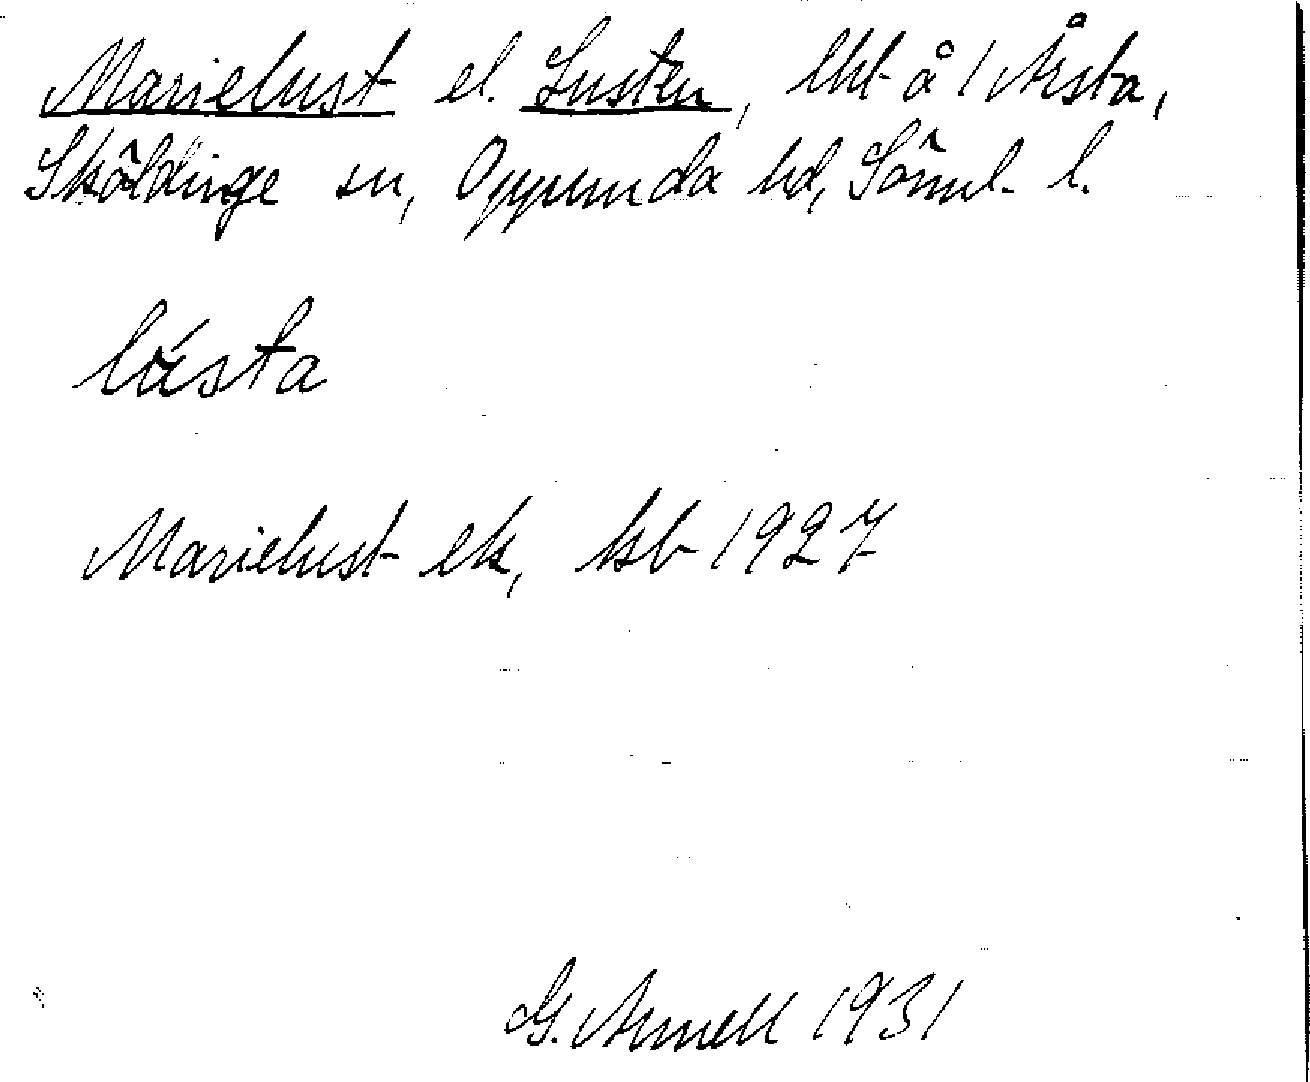 Marielust el. Lusten, lht å 1 Årsta,
Sköldinge sn, Oppunda hd, Söml. l.
lásta
Marielust ek, ksb 1927
G. Arnell 1931